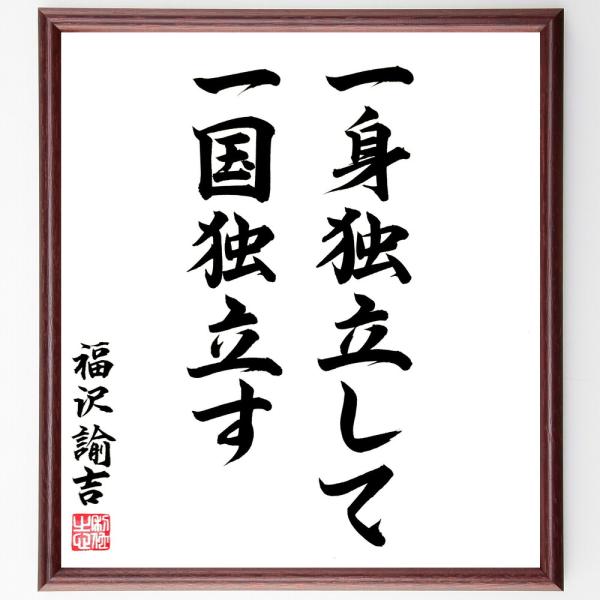 一身独立して
一国独立す
福沢諭吉